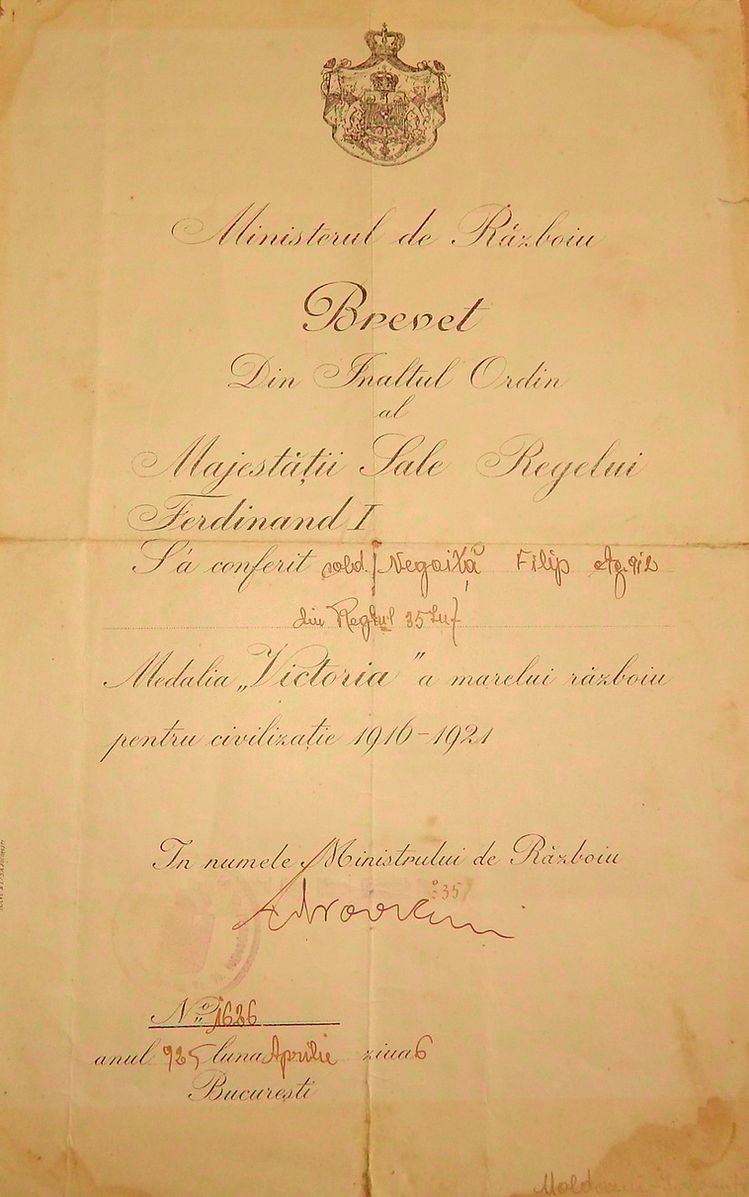 Ministerul de Răsboiu
Brevet
Din Inaltul Ordin
al
Majestății Sale Regelui
Ferdinand I
S'a conferit sold. Negoiță Filip
din Regtul 35 Inf
Medalia „Victoria” a marelui răsboiu
pentru civilizație 1916-1921
In numele Ministrului de Răsboiu
35
No 1636
anul 925 luna Aprilie ziua 6
București